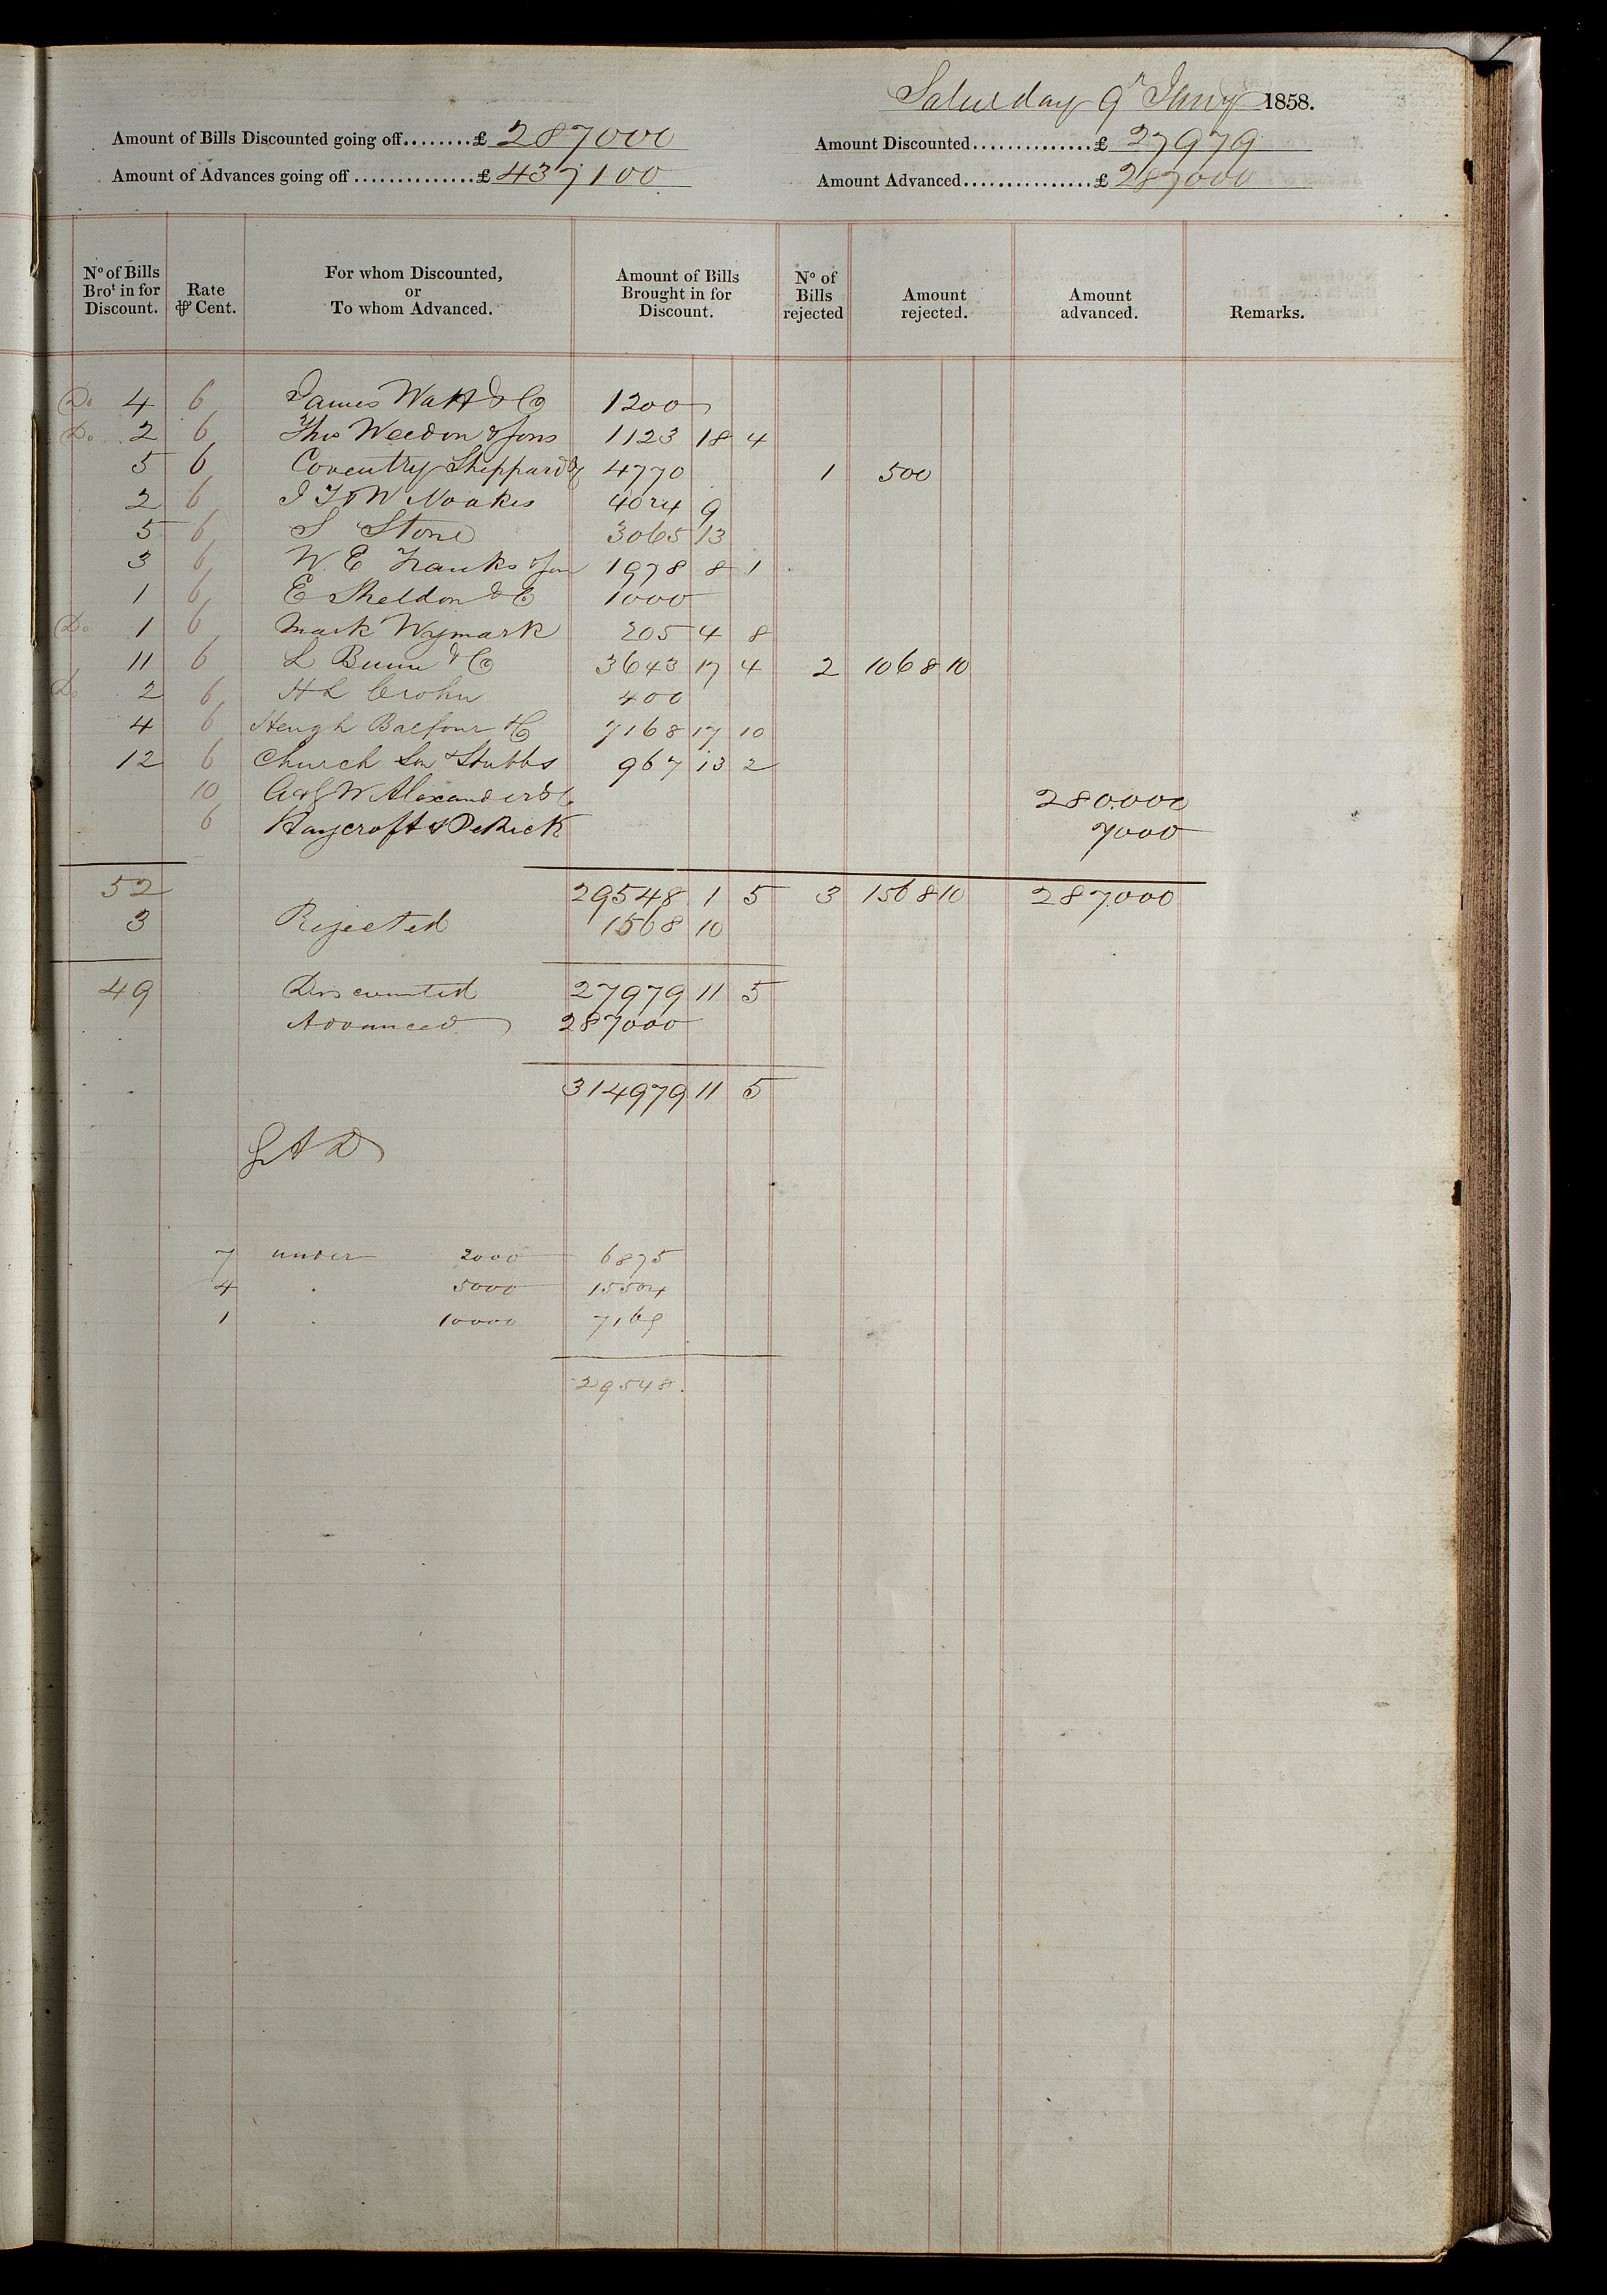 Saturday 9th Jany 1858.
Amount of Bills Discounted going off........£ 287000 Amount Discounted..............£ 27979
Amount of Advances going off..............£ 437100 Amount Advanced...............£ 287000
No of Bills Brot in for Discount. Rate ⅌ Cent. For whom Discounted, or To whom Advanced. Amount of Bills Brought in for Discount. No of Bills rejected Amount rejected. Amount advanced. Remarks.
Do 4 6 James Watt & Co 1200
Do 2 6 Thos Weedon & Sons 1123 18 4
5 6 Coventry Sheppard & 4770 1 500
2 6 J T & W Noakes 4024 9
5 6 S Stone 3065 13
3 6 W. E Franks & Son 1978 8 1
1 6 E Sheldon & C 1000
Do 1 6 Mark Wymark 205 4 8
11 6 L Bunn & Co 3643 17 4 2 1068 10
Do 2 6 H L Crohn 400
4 6 Heugh Balfour & C 7168 17 10
12 6 Church Son & Stubbs 967 13 2
10 G & W Alexander & C 280.000
6 Haycroft & Pethick 7000
52 29548 1 5 3 1568 10 287.000
3 Rejected 1568 10
49 Discounted 27979 11 5
Advanced 287000
314979 11 5
7 under 2000 6875
4 . 5000 15504
1 . 10000 7169
29548.